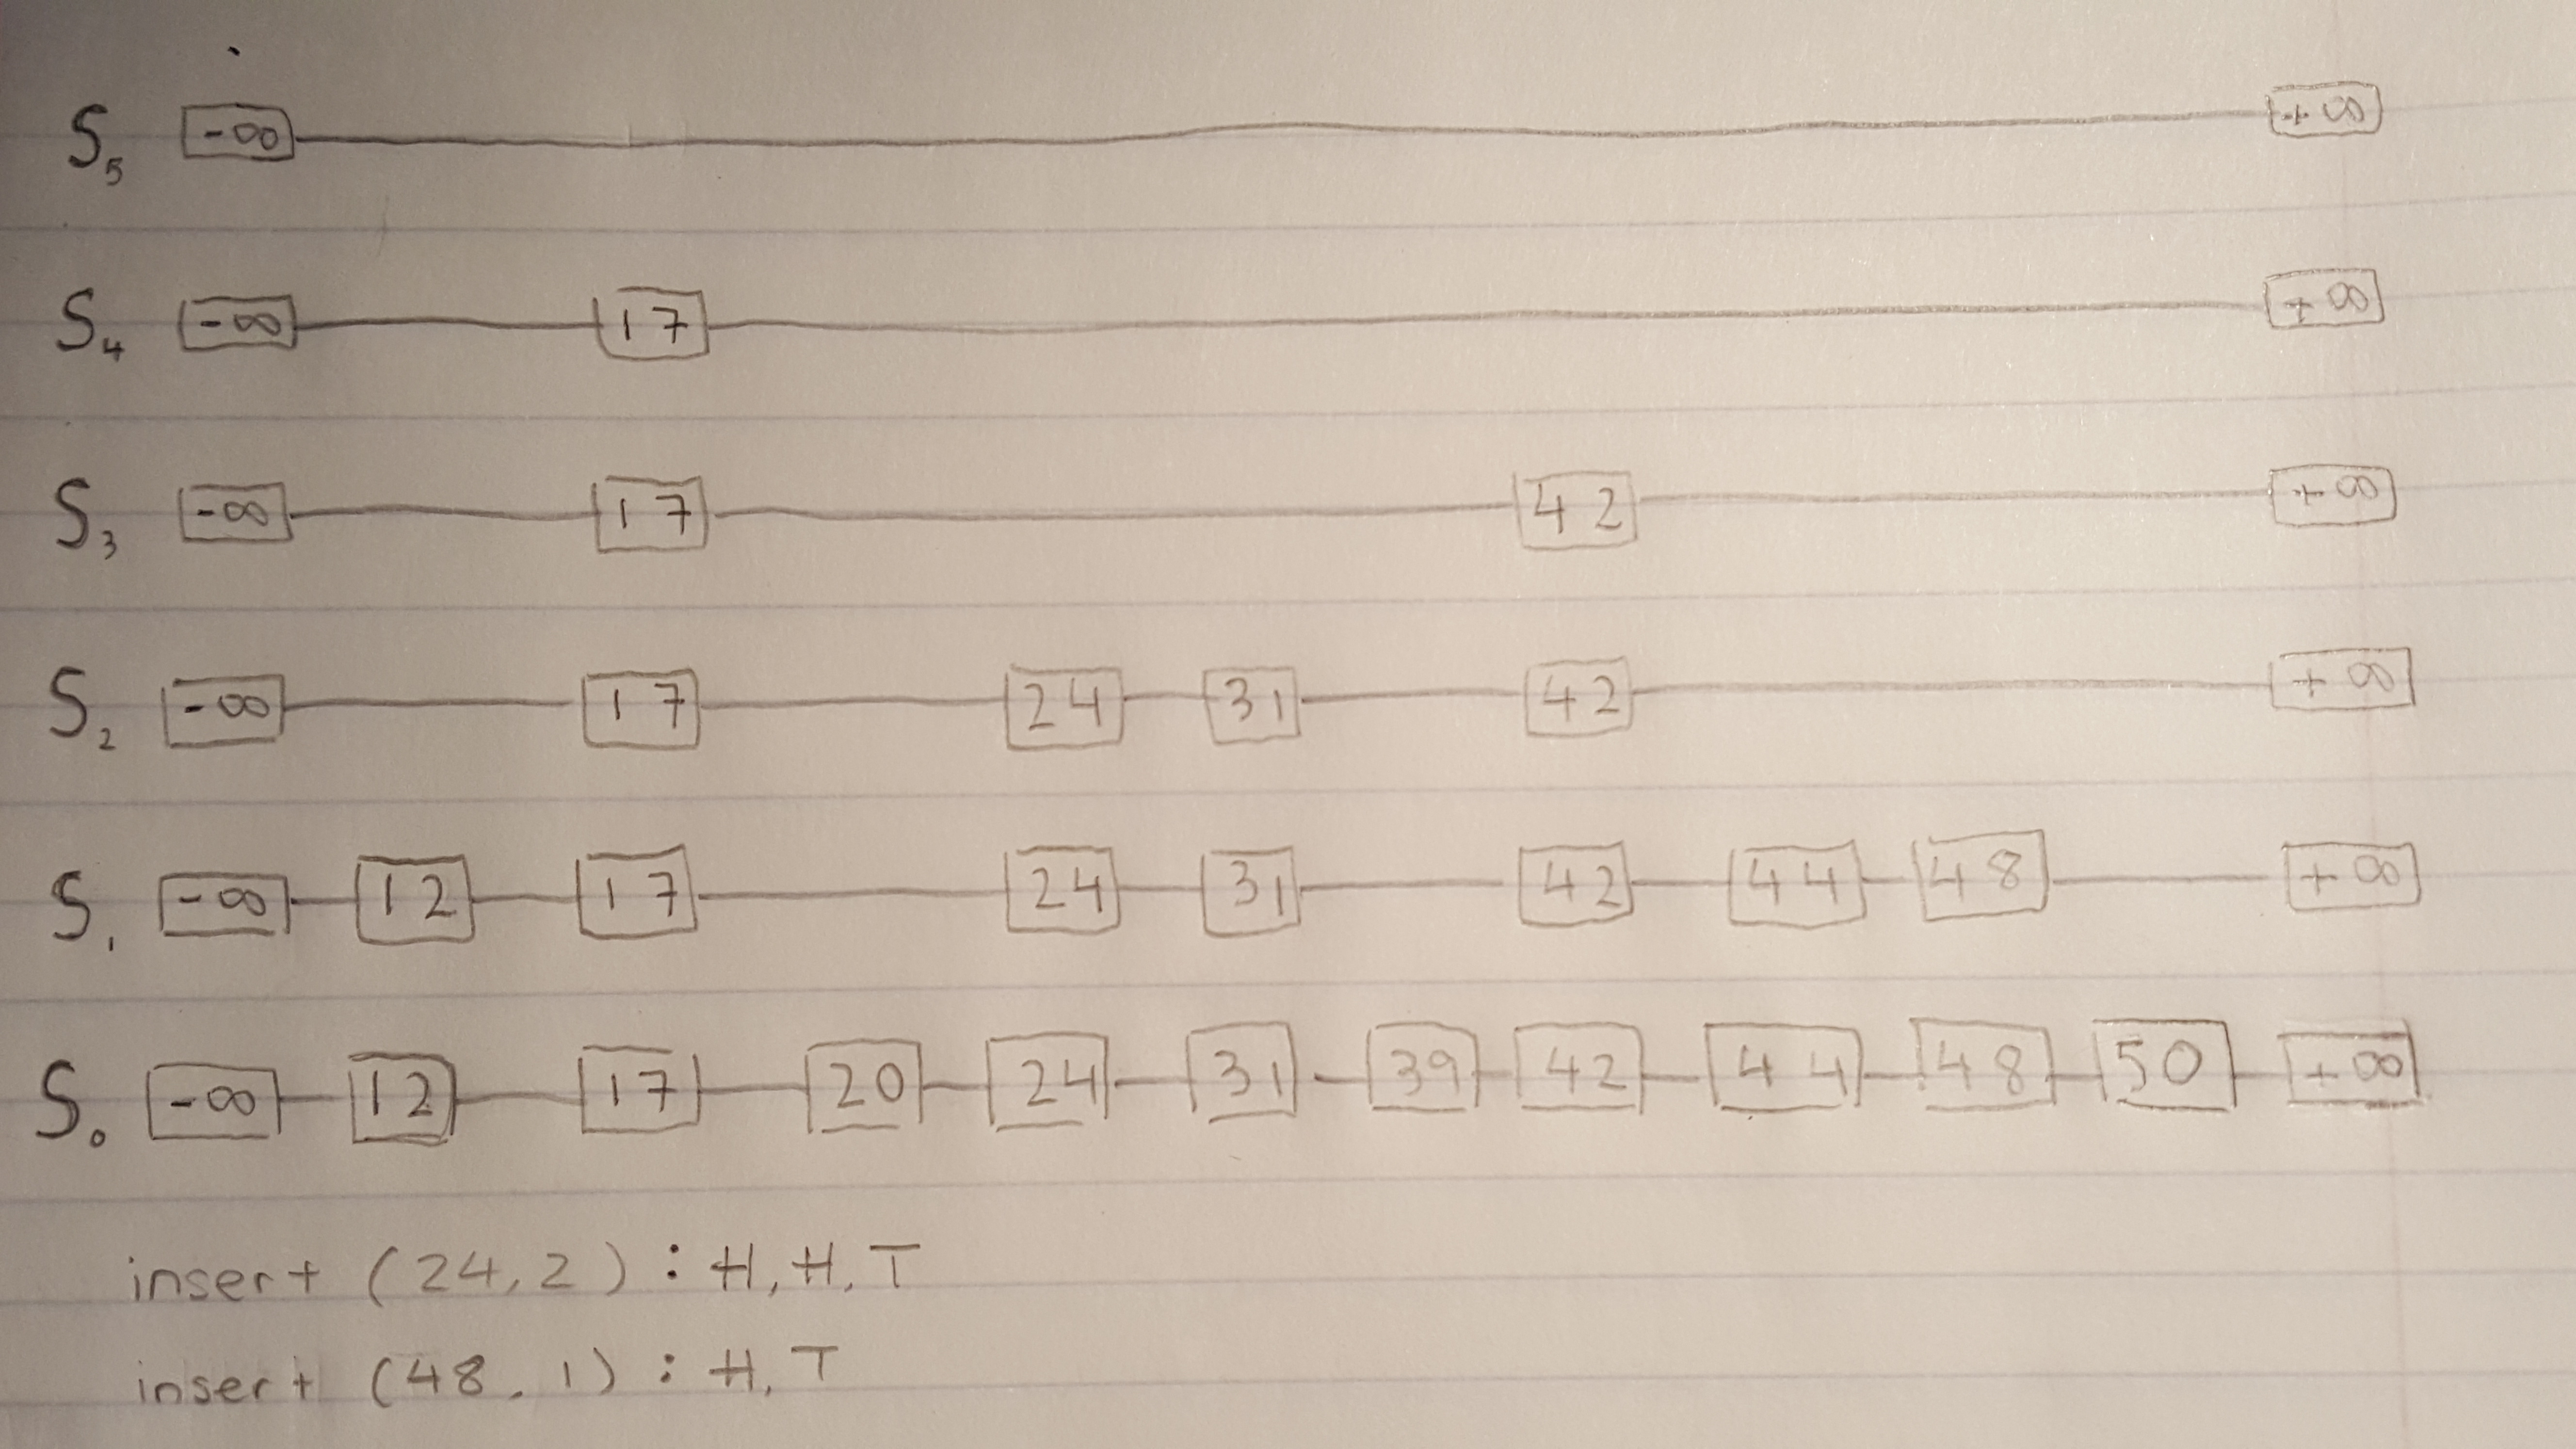 S5 -∞ +∞
S4 -∞ 17 +∞
S3 -∞ 17 42 +∞
S2 -∞ 17 24 31 42 +∞
S1 -∞ 12 17 24 31 42 44 48 +∞
S0 -∞ 12 17 20 24 31 39 42 44 48 50 +∞
insert (24,2) : H, H, T
insert (48, 1) : H, T